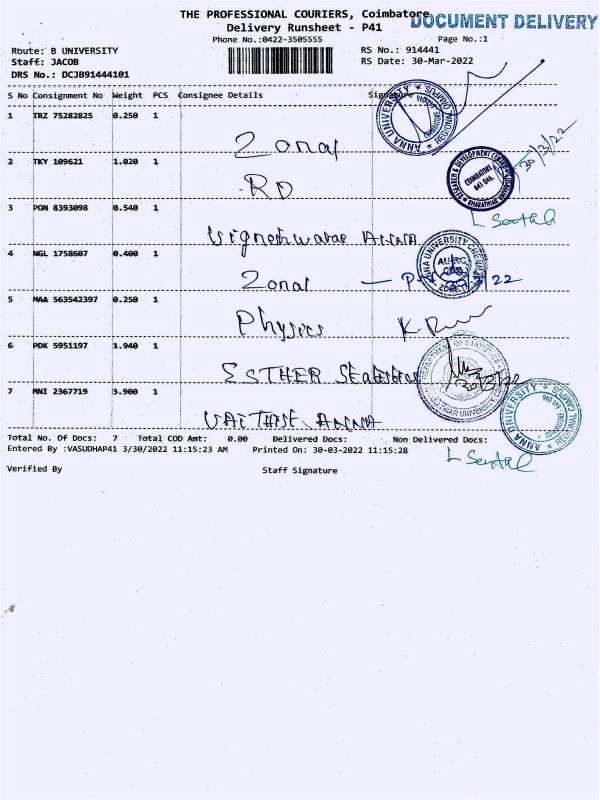 THE PROFESSIONAL COURIERS, Coimbatore
DOCUMENT DELIVERY
Delivery Runsheet - P41
Phone No.:0422-3505555
Page No.:1
Route: B UNIVERSITY
RS No.: 914441
Staff: JACOB
RS Date: 30-Mar-2022
DRS No.: DCJB91444101
S No Consignment No Weight PCS Consignee Details Signature
1 TRZ 75282825 0.250 1
Zonal
ANNA UNIVERSITY REGIONAL CAMPUS COIMBATORE
2 TKY 109621 1.020 1
RD
RESEARCH & DEVELOPMENT CENTRE BHARATHIAR UNIVERSITY
COIMBATORE
641 046.
30/3/22
3 PON 8393098 0.540 1
Vigneshwaran ANNA
4 NGL 1758607 0.400 1
Zonal
ANNA UNIVERSITY
5 MAA 563542397 0.250 1
Physics
6 PDK 5951197 1.940 1
ESTHER Statistics
7 MNI 2367719 3.900 1
ANNA
ANNA UNIVERSITY REGIONAL CAMPUS
Total No. Of Docs: 7 Total COD Amt: 0.00 Delivered Docs: Non Delivered Docs:
Entered By :VASUDHAP41 3/30/2022 11:15:23 AM Printed On: 30-03-2022 11:15:28
Verified By Staff Signature